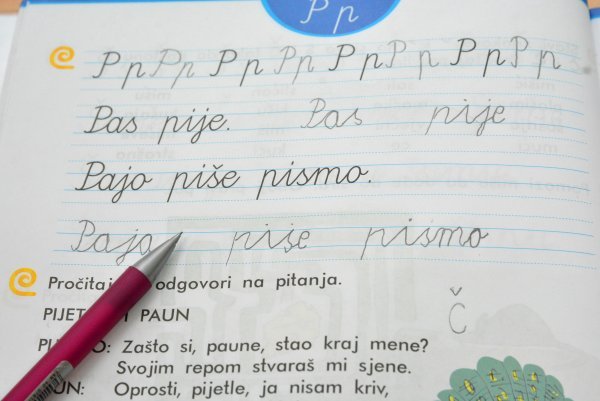 P p
P p P p P p P p P p P p P p P p
Pas pije. Pas pije
Pajo piše pismo.
Pajo piše pismo
Pročitaj odgovori na pitanja.
PAUN
Č
Zašto si, paune, stao kraj mene?
Svojim repom stvaraš mi sjene.
Oprosti, pijetle, ja nisam kriv,